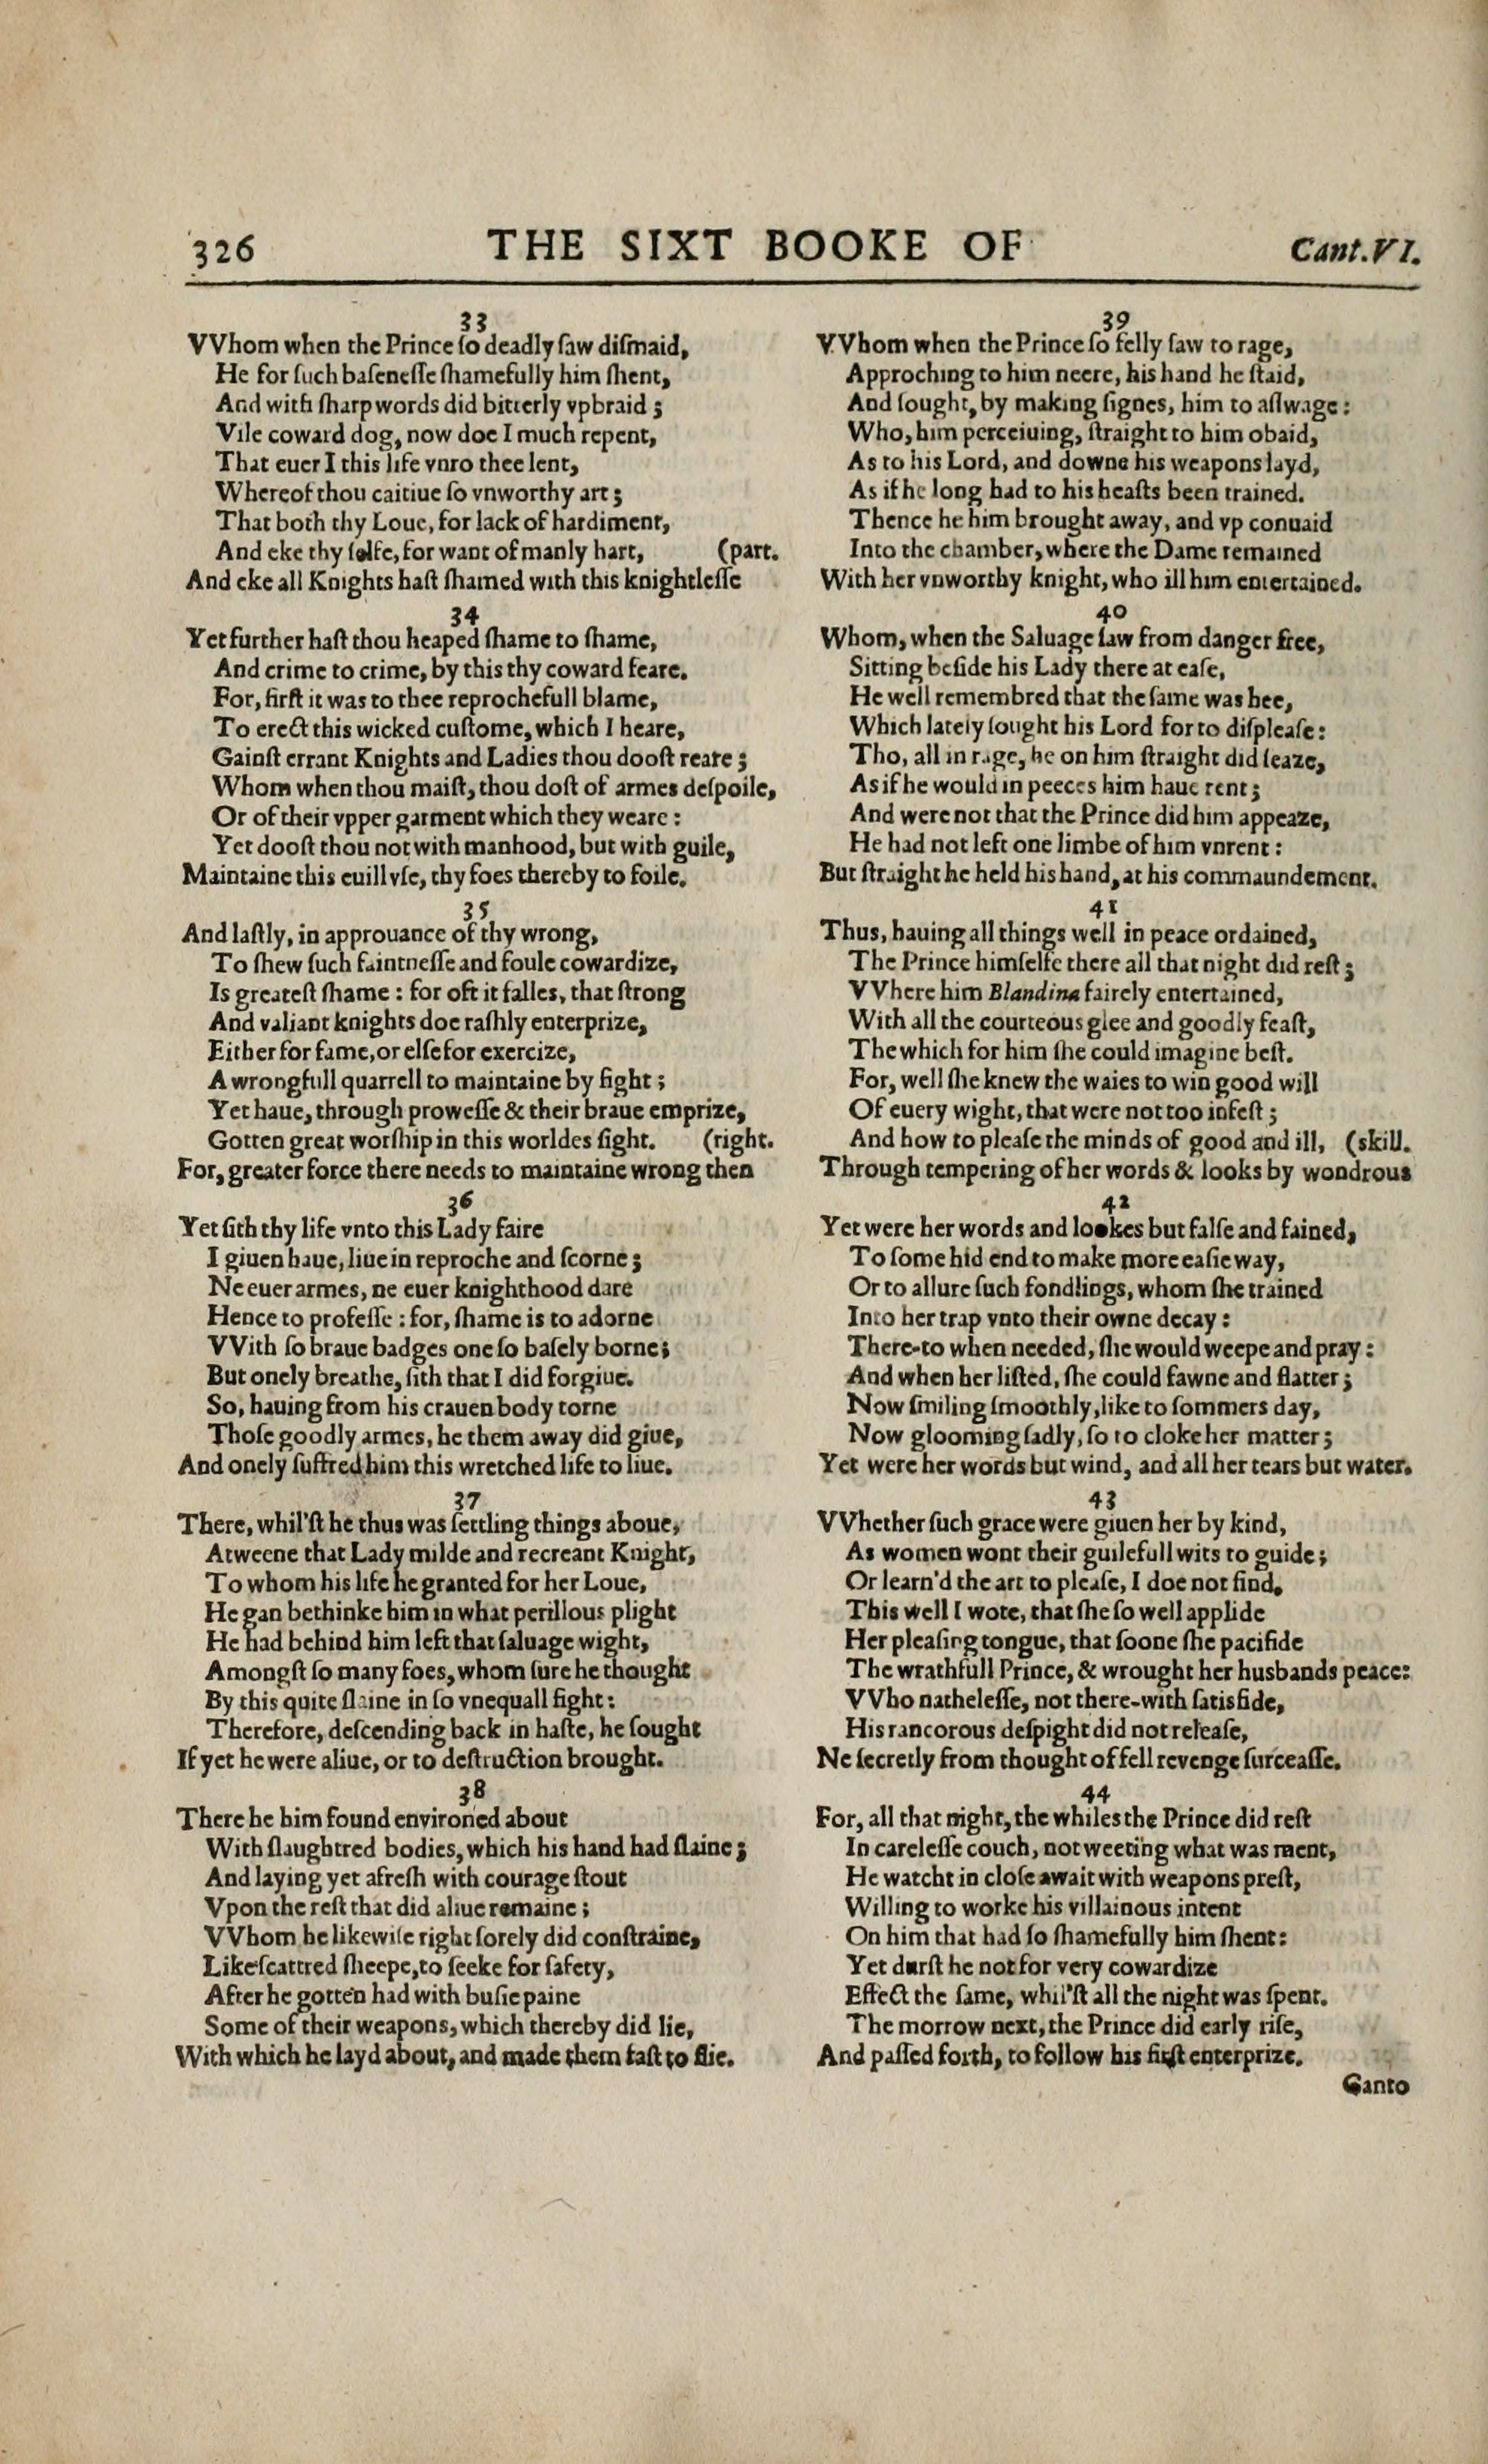 326 THE SIXT BOOKE OF Cant. VI.
33
VVhom when the Prince ſo deadly ſaw diſmaid,
He for ſuch baſeneſſe ſhamefully him ſhent,
And with ſharp words did bitterly vpbraid;
Vile coward dog, now doe I much repent,
That euer I this life vnto thee lent,
Whereof thou caitiue ſo vnworthy art;
That both thy Loue, for lack of hardiment,
And eke thy ſelfe, for want of manly hart, (part.
And eke all Knights haſt ſhamed with this knightleſſe
34
Yet further haſt thou heaped ſhame to ſhame,
And crime to crime, by this thy coward feare.
For, firſt it was to thee reprochefull blame,
To erect this wicked cuſtome, which I heare,
Gainſt errant Knights and Ladies thou dooſt reare;
Whom when thou maiſt, thou doſt of armes deſpoile,
Or of their vpper garment which they weare:
Yet dooſt thou not with manhood, but with guile,
Maintaine this euill vſe, thy foes thereby to foile.
35
And laſtly, in approuance of thy wrong,
To ſhew ſuch faintneſſe and foule cowardize,
Is greateſt ſhame: for oft it falles, that ſtrong
And valiant knights doe raſhly enterprize,
Either for fame, or elſe for exercize,
A wrongfull quarrell to maintaine by fight;
Yet haue, through proweſſe & their braue emprize,
Gotten great worſhip in this worldes ſight. (right.
For, greater force there needs to maintaine wrong then
36
Yet ſith thy life vnto this Lady faire
I giuen haue, liue in reproche and ſcorne;
Ne euer armes, ne euer knighthood dare
Hence to profeſſe: for, ſhame is to adorne
VVith ſo braue badges one ſo baſely borne;
But onely breathe, ſith that I did forgiue.
So, hauing from his crauen body torne
Thoſe goodly armes, he them away did giue,
And onely ſuffred him this wretched life to liue.
37
There, whil'ſt he thus was ſettling things aboue,
Atweene that Lady milde and recreant Knight,
To whom his life he granted for her Loue,
He gan bethinke him in what perillous plight
He had behind him left that ſaluage wight,
Amongſt ſo many foes, whom ſure he thought
By this quite ſlaine in ſo vnequall fight:
Therefore, deſcending back in haſte, he ſought
If yet he were aliue, or to deſtruction brought.
38
There he him found environed about
With ſlaughtred bodies, which his hand had ſlaine;
And laying yet afreſh with courage ſtout
Vpon the reſt that did aliue remaine;
VVhom he likewiſe right ſorely did conſtraine,
Like ſcattred ſheepe, to ſeeke for ſafety,
After he gotten had with buſie paine
Some of their weapons, which thereby did lie,
With which he layd about, and made them faſt to flie.
39
VVhom when the Prince ſo felly ſaw to rage,
Approching to him neere, his hand he ſtaid,
And ſought, by making ſignes, him to aſſwage:
Who, him perceiuing, ſtraight to him obaid,
As to his Lord, and downe his weapons layd,
As if he long had to his heaſts been trained.
Thence he him brought away, and vp conuaid
Into the chamber, where the Dame remained
With her vnworthy knight, who ill him entertained.
40
Whom, when the Saluage ſaw from danger free,
Sitting beſide his Lady there at eaſe,
He well remembred that the ſame was hee,
Which lately ſought his Lord for to diſpleaſe:
Tho, all in rage, he on him ſtraight did ſeaze,
As if he would in peeces him haue rent;
And were not that the Prince did him appeaze,
He had not left one limbe of him vnrent:
But ſtraight he held his hand, at his commaundement.
41
Thus, hauing all things well in peace ordained,
The Prince himſelfe there all that night did reſt;
VVhere him Blandina fairely entertained,
With all the courteous glee and goodly feaſt,
The which for him ſhe could imagine beſt.
For, well ſhe knew the waies to win good will
Of euery wight, that were not too infeſt;
And how to pleaſe the minds of good and ill, (skill.
Through tempering of her words & looks by wondrous
42
Yet were her words and lookes but falſe and fained,
To ſome hid end to make more eaſie way,
Or to allure ſuch fondlings, whom ſhe trained
Into her trap vnto their owne decay:
There-to when needed, ſhe would weepe and pray:
And when her liſted, ſhe could fawne and flatter;
Now ſmiling ſmoothly, like to ſommers day,
Now glooming ſadly, ſo to cloke her matter;
Yet were her words but wind, and all her tears but water.
43
VVhether ſuch grace were giuen her by kind,
As women wont their guilefull wits to guide;
Or learn'd the art to pleaſe, I doe not find.
This well I wote, that ſhe ſo well applide
Her pleaſing tongue, that ſoone ſhe pacifide
The wrathfull Prince, & wrought her husbands peace:
VVho natheleſſe, not there-with ſatisfide,
His rancorous deſpight did not releaſe,
Ne ſecretly from thought of fell revenge ſurceaſſe.
44
For, all that night, the whiles the Prince did reſt
In careleſſe couch, not weeting what was ment,
He watcht in cloſe await with weapons preſt,
Willing to worke his villainous intent
On him that had ſo ſhamefully him ſhent:
Yet durſt he not for very cowardize
Effect the ſame, whil'ſt all the night was ſpent.
The morrow next, the Prince did early riſe,
And paſſed forth, to follow his firſt enterprize.
Canto